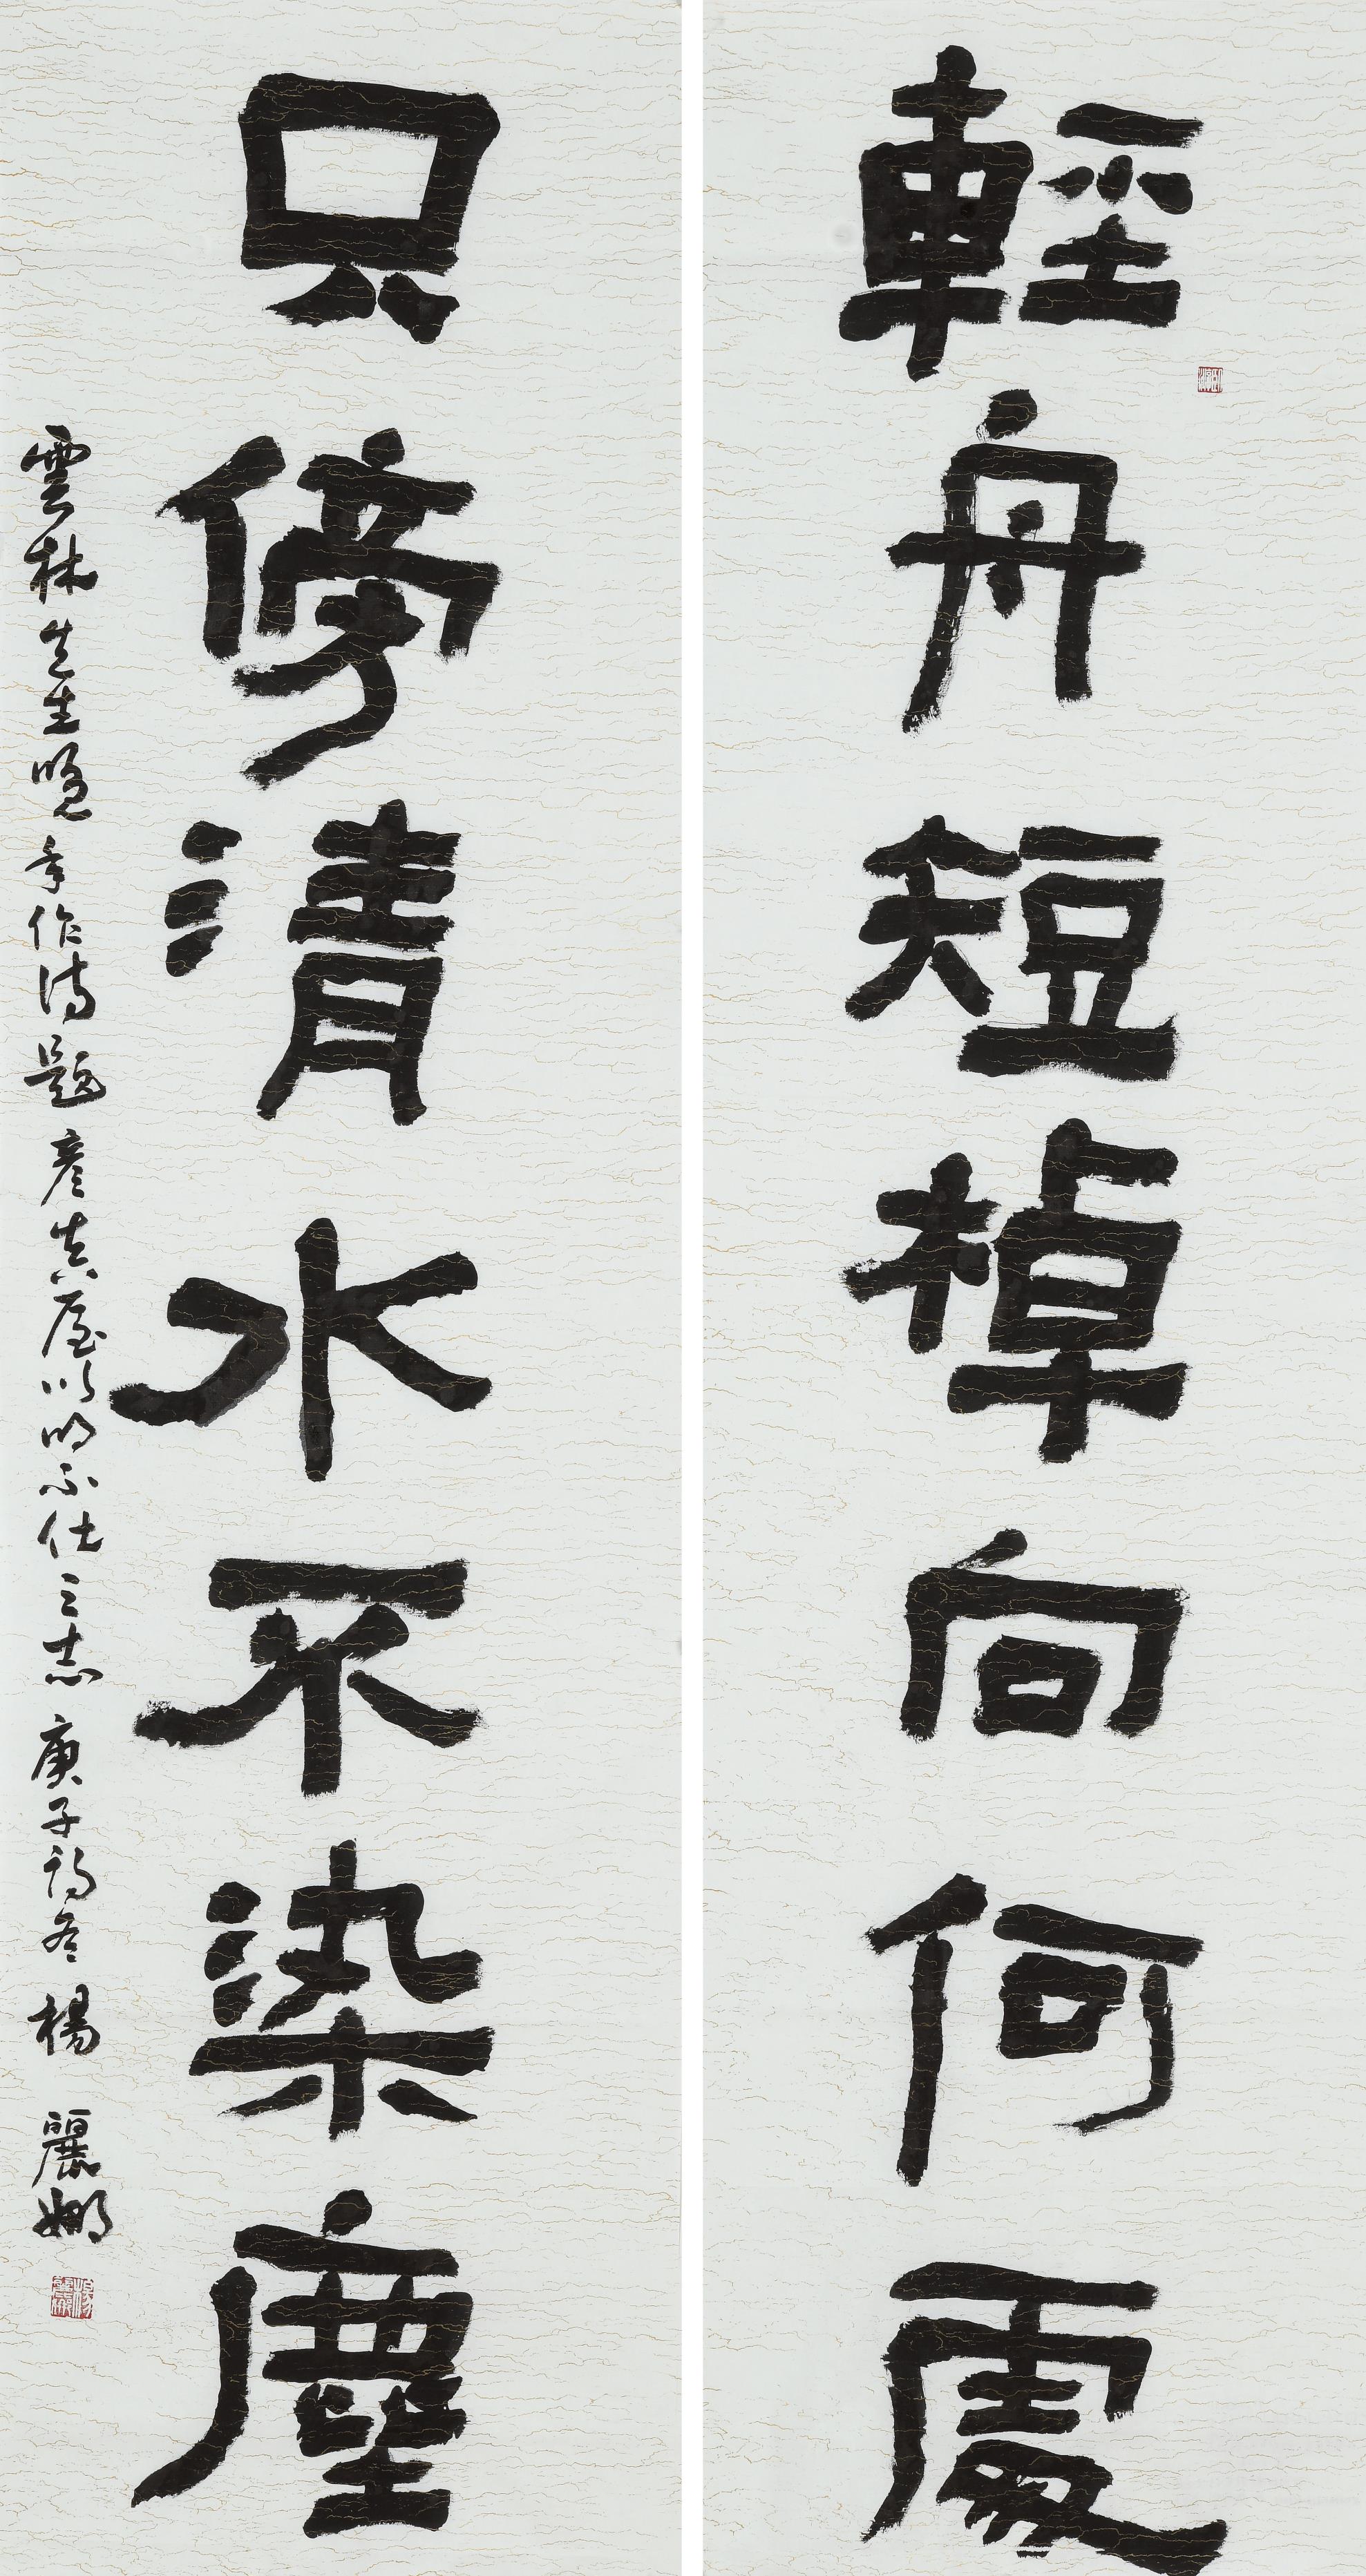 輕舟短棹向何處
只傍清水不染塵
雲林先生晚年作詩題彥真屋以明不仕之志庚子初冬楊麗娜